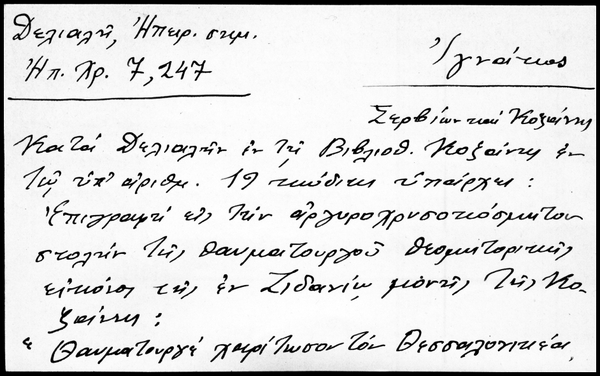 Δελιαλῆ, Ἠπειρ. σημ.
Ἠπ. Χρ. 7, 247
Ἰγνάτιος
Σερβίων καὶ Κοζάνης
Κατὰ Δελιαλῆν ἐν τῇ Βιβλιοθ. Κοζάνης ἐν
τῷ ὑπ' ἀριθμ. 19 κώδικι ὑπάρχει:
Ἐπιγραφὴ εἰς τὴν ἀργυροχρυσοκόσμητον
στολὴν τῆς θαυματουργοῦ θεομητορικῆς
εἰκόνος τῆς ἐν Ζιδανίῳ μονῆς τῆς Κο-
ζάνης:
« Θαυματουργὲ χαρίτωσον τὸν Θεσσαλονικέα,